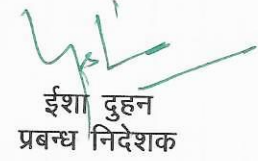 ईशा दुहन
प्रबन्ध निदेशक